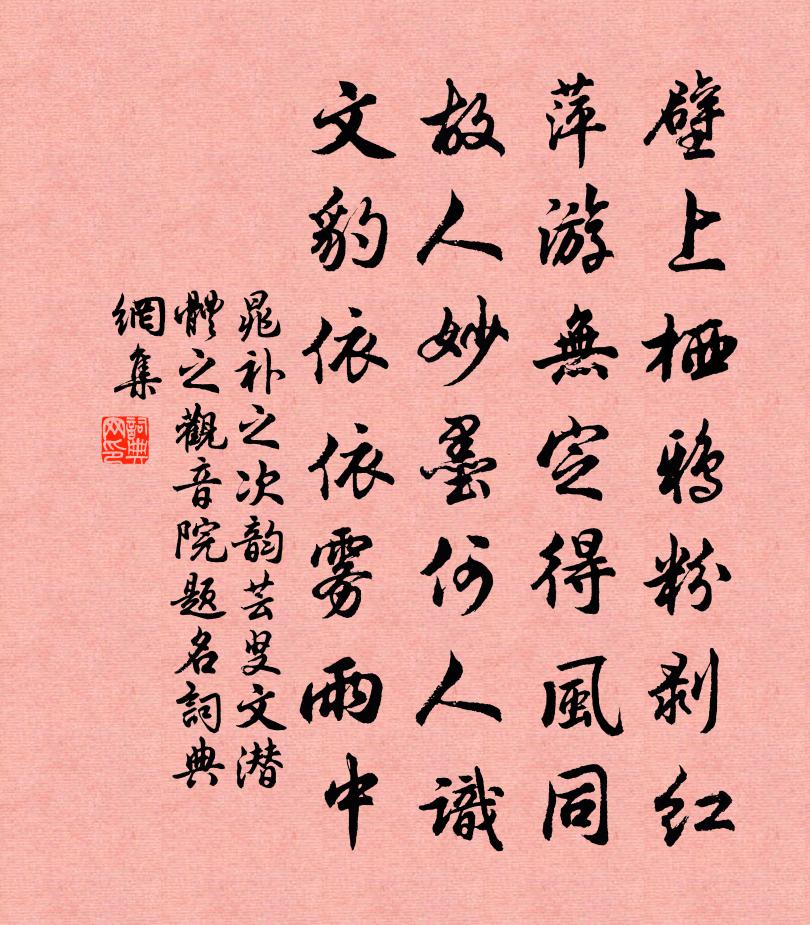 壁上栖鸦粉剥红
萍游無定得風同
故人妙墨何人識
文豹依依雾雨中
晁补之次韵芸叟文潜
體之觀音院题名詞典
網集
詞典
网印